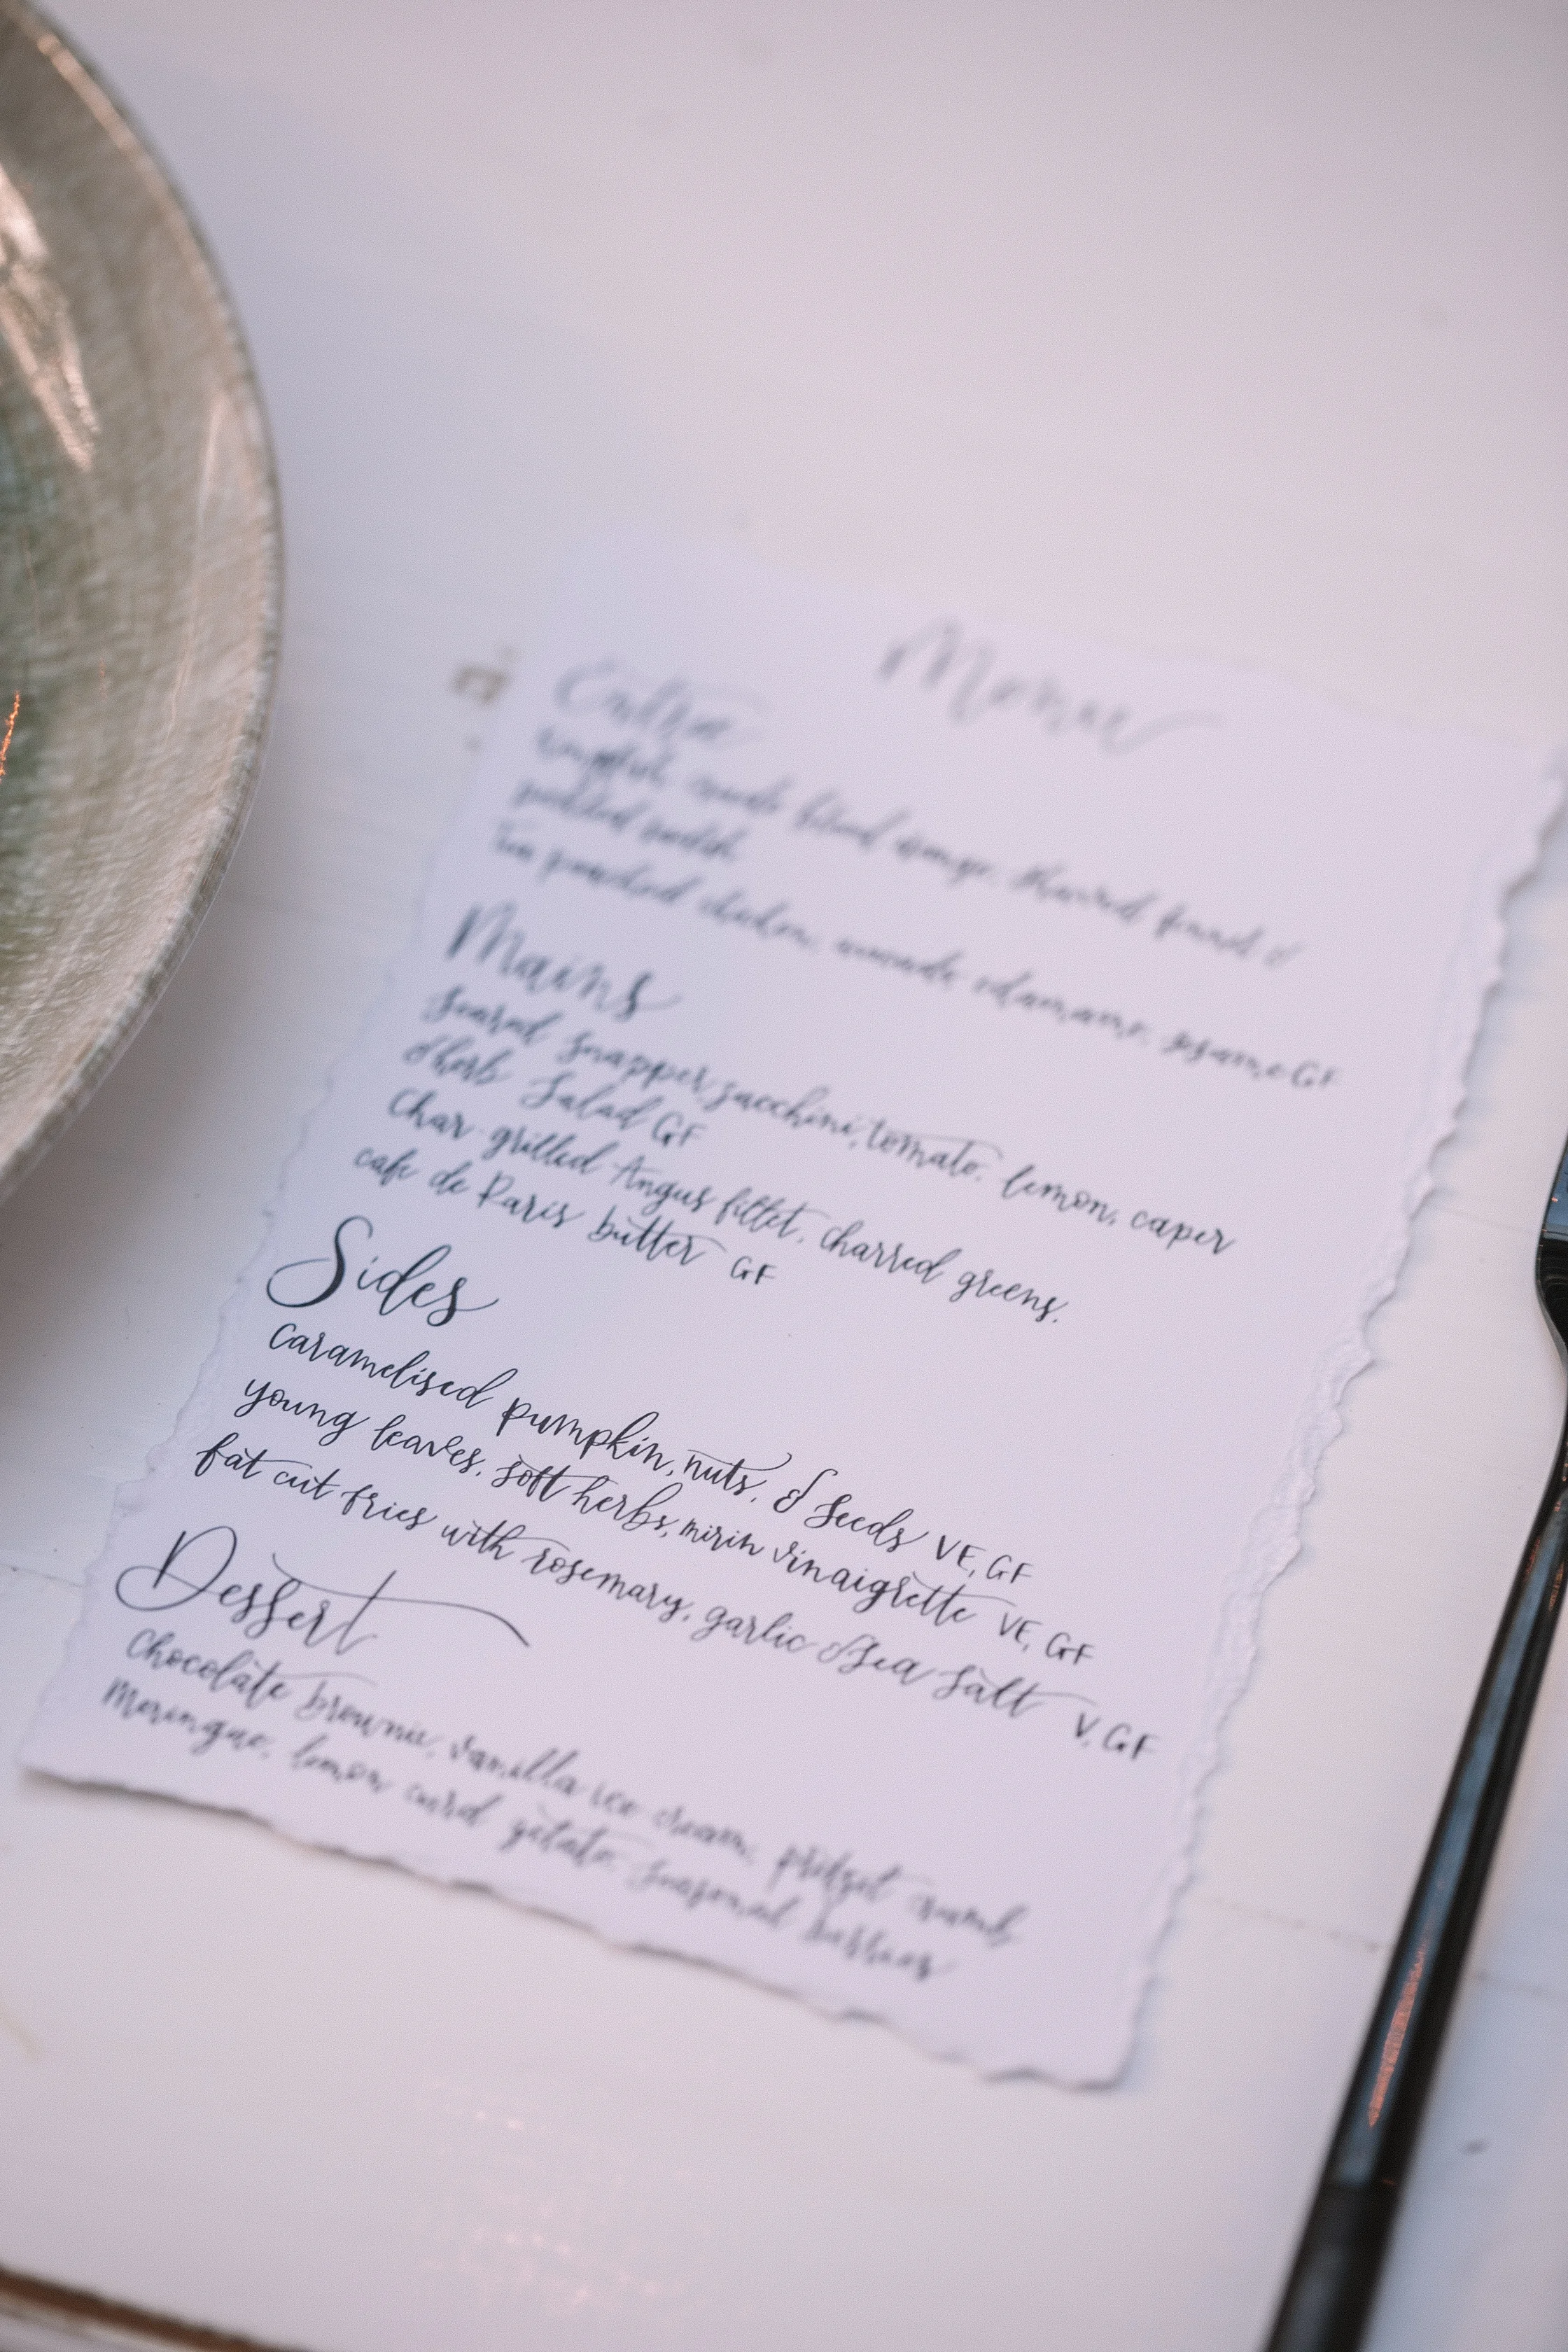 Menu
Entree
kingfish, crudo blood orange, shaved fennel &
pickled radish
Tea poached chicken, avocado, edamame, sesame GF
Mains
Seared Snapper, zucchini, tomato, lemon, caper
& herb Salad GF
Char-grilled Angus fillet, charred greens,
cafe de Paris butter GF
Sides
Caramelised pumpkin, nuts, & seeds VE, GF
young leaves, soft herbs, mirin vinaigrette VE, GF
fat cut fries with rosemary, garlic & sea salt V, GF
Dessert
Chocolate brownie, vanilla ice cream, crumb
Meringue, lemon curd gelato, seasonal berries